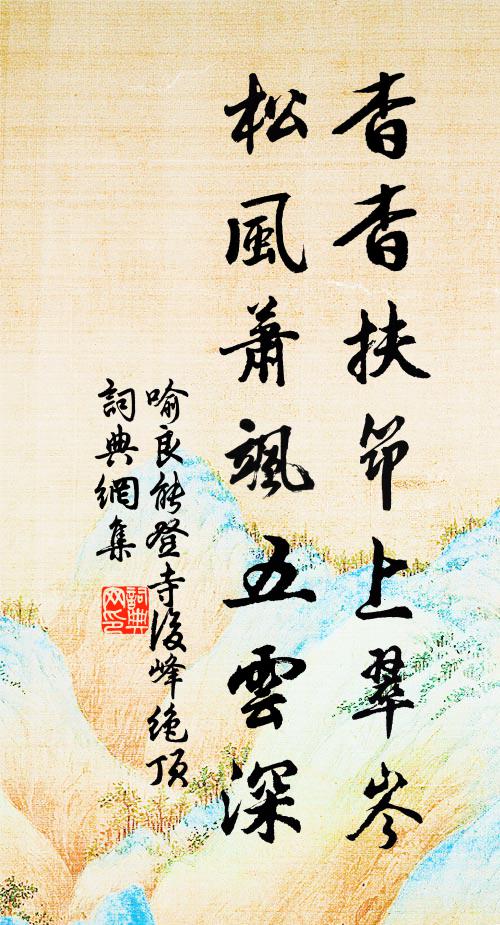 杳杳扶筇上翠岑
松風蕭颯五雲深
喻良能登寺後峰絕頂
詞典網集
詞典
网印